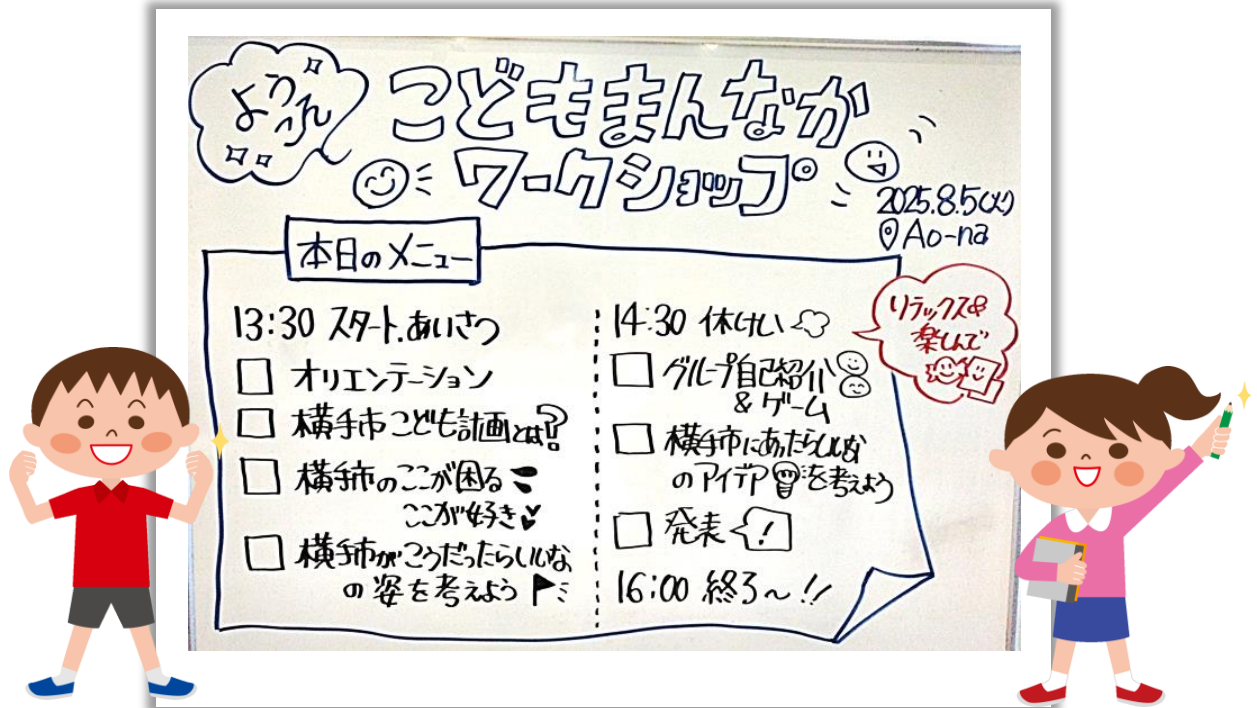 ようこそ
こどもまんなか
ワークショップ
2025.8.5(火)
Ao-na
本日のメニュー
13:30 スタート、あいさつ
オリエンテーション
横手市こども計画とは?
横手市のここが困る
ここが好き
横手市がこうだったらいいな
の姿を考えよう
14:30 休けい
グループ自己紹介
& ゲーム
横手市にあったらいいな
のアイデアを考えよう
発表 !
16:00 終了〜!!
リラックス&
楽しんで